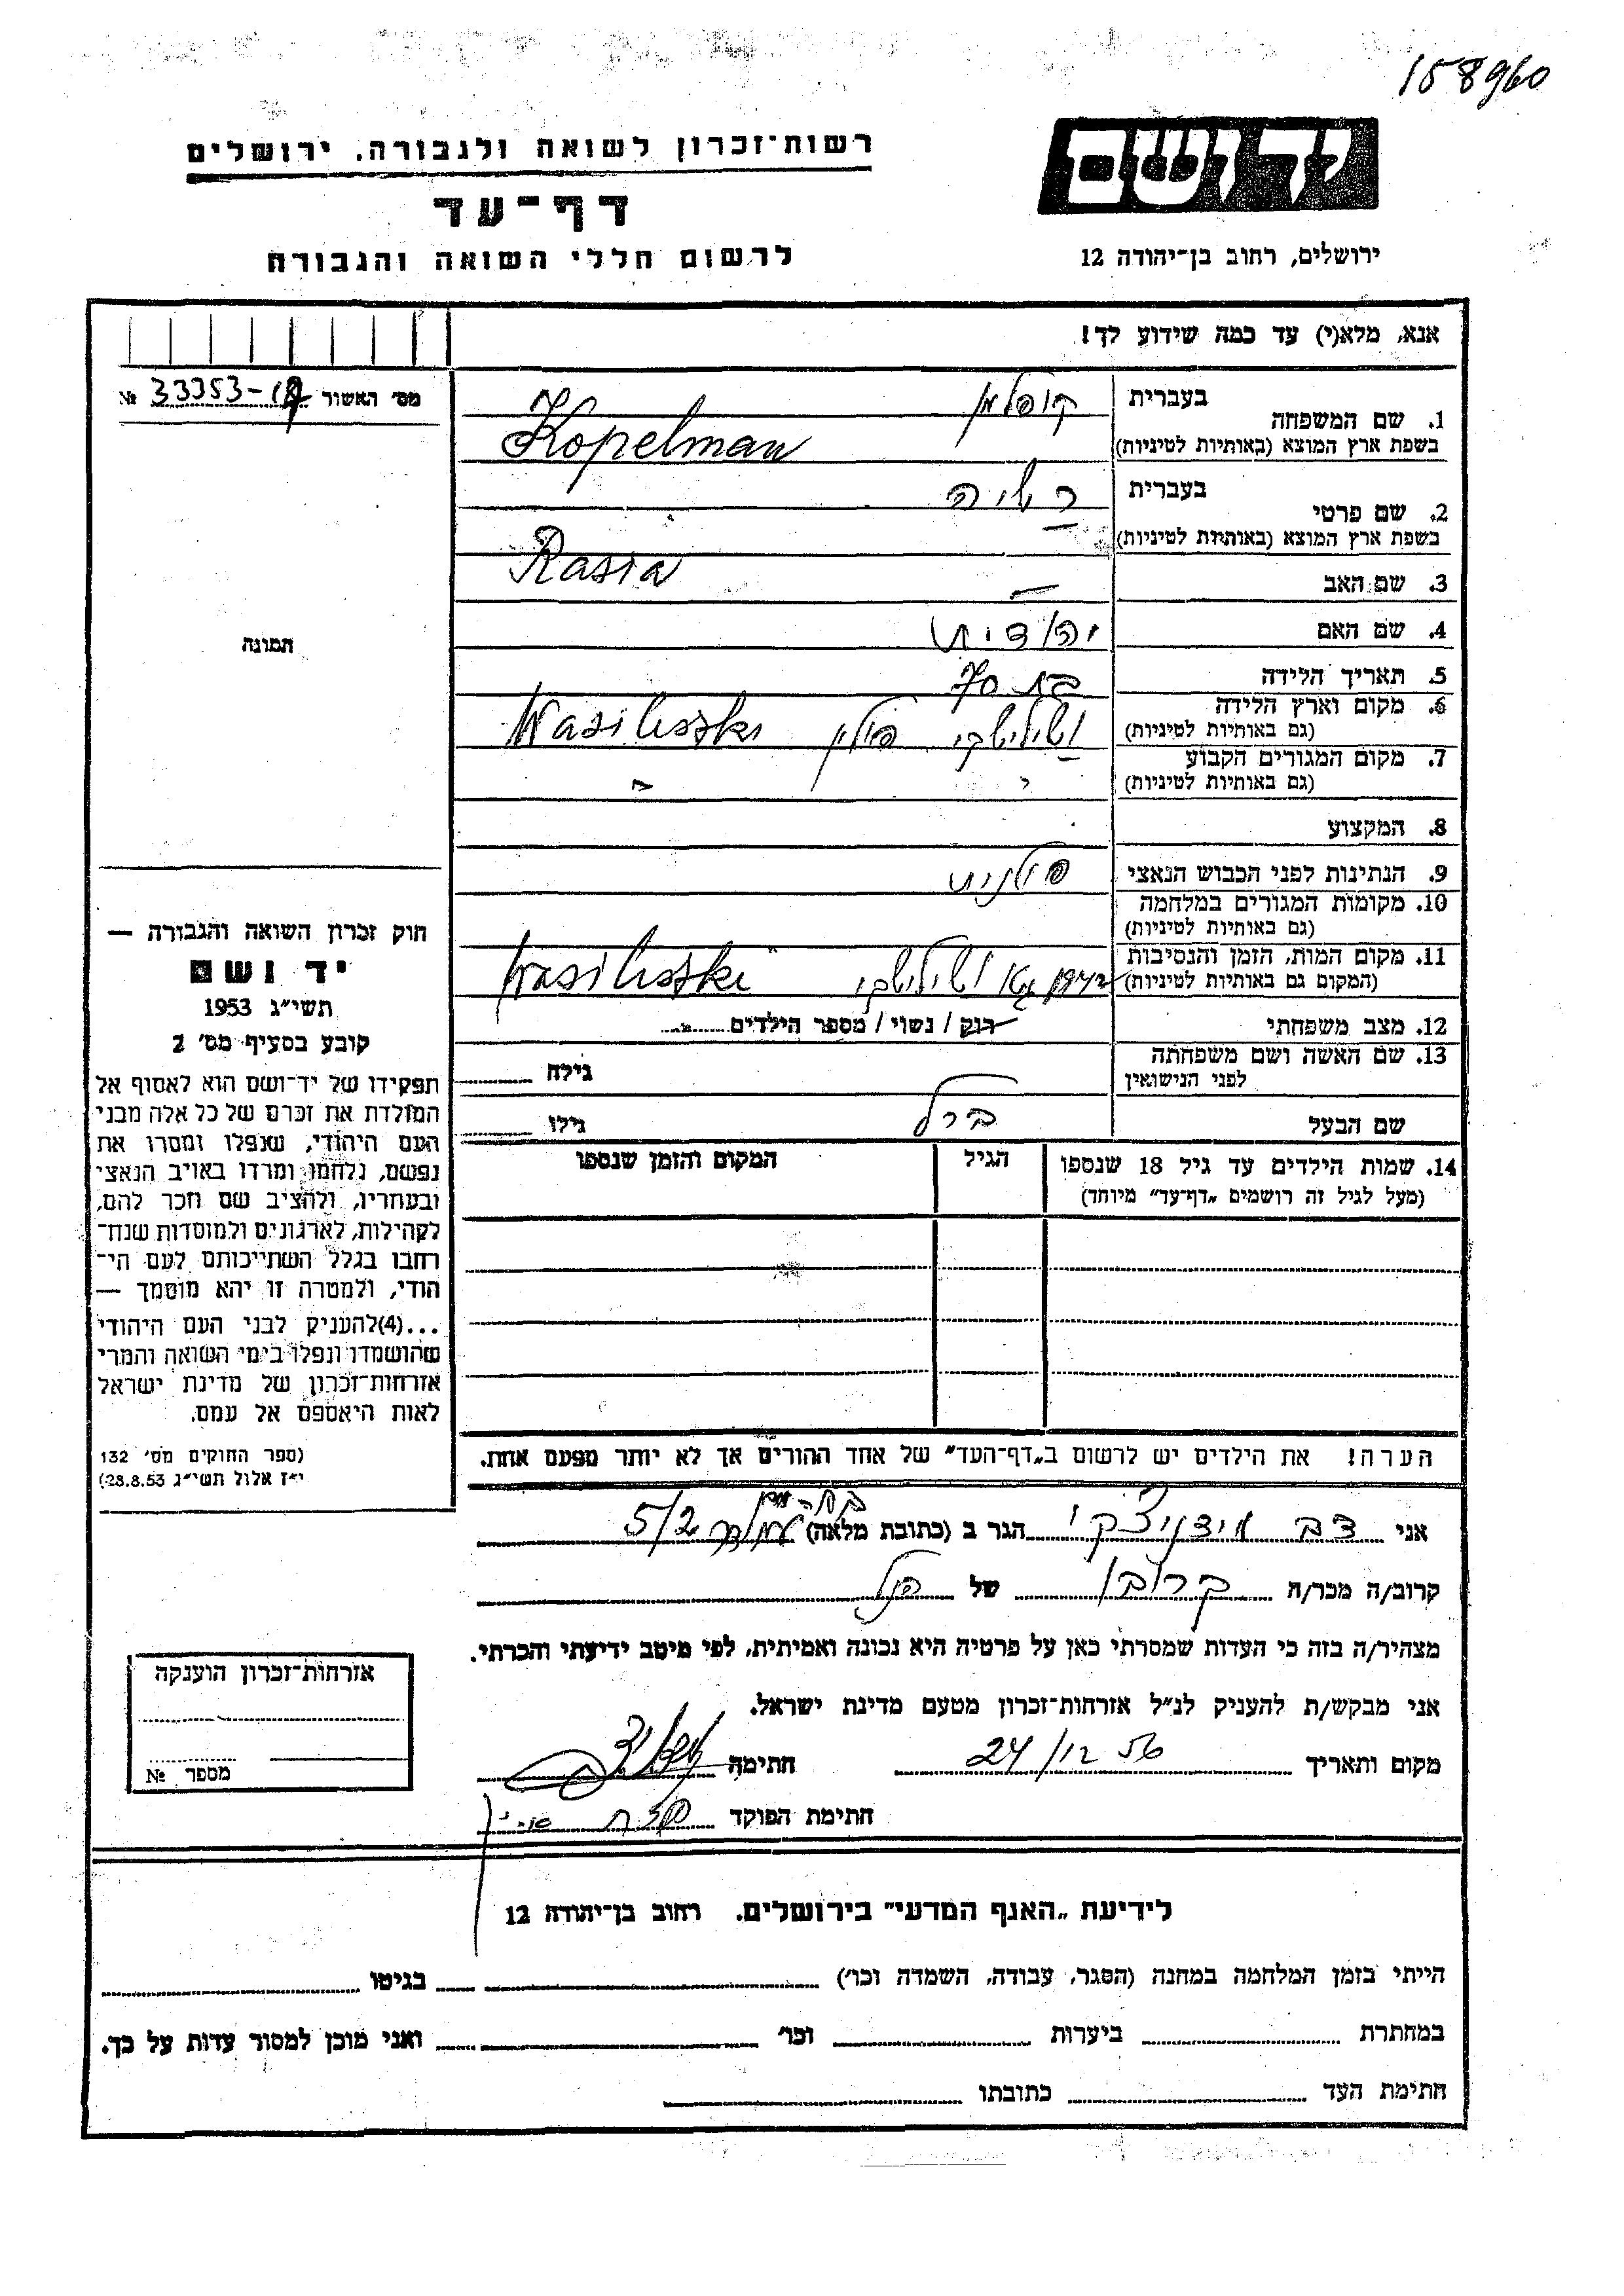 158960
יד ושם
רשות־זכרון לשואה ולגבורה. ירושלים
דף־עד
לרשום חללי השואה והגבורה
ירושלים, רחוב בן־יהודה 12
אנא, מלא(י) עד כמה שידוע לך!
מס׳ האשור № 33353-
1. שם המשפחה בעברית קופלמן
בשפת ארץ המוצא (באותיות לטיניות) Kopelman
2. שם פרטי בעברית רשיה
בשפת ארץ המוצא (באותיות לטיניות) Rasia
3. שם האב —
4. שם האם יהודית
5. תאריך הלידה בת 70
6. מקום וארץ הלידה (גם באותיות לטיניות) ושילישקי פולין Wasiliszki
7. מקום המגורים הקבוע (גם באותיות לטיניות)
8. המקצוע
9. הנתינות לפני הכבוש הנאצי פולנית
10. מקומות המגורים במלחמה (גם באותיות לטיניות)
11. מקום המות, הזמן והנסיבות (המקום גם באותיות לטיניות) ושילישקי Wasiliszki
12. מצב משפחתי רוק / נשוי / מספר הילדים
13. שם האשה ושם משפחתה לפני הנישואין גילה
שם הבעל ברל גילו
14. שמות הילדים עד גיל 18 שנספו הגיל המקום והזמן שנספו
(מעל לגיל זה רושמים „דף־עד” מיוחד)
הערה! את הילדים יש לרשום ב„דף־העד” של אחד ההורים אך לא יותר מפעם אחת.
תמונה
חוק זכרון השואה והגבורה —
יד ושם
תשי״ג 1953
קובע בסעיף מס׳ 2
תפקידו של יד־ושם הוא לאסוף אל
המולדת את זכרם של כל אלה מבני
העם היהודי, שנפלו ומסרו את
נפשם, נלחמו ומרדו באויב הנאצי
ובעוזריו, ולהציב שם וזכר להם,
לקהילות, לארגונים ולמוסדות שנח־
רחבו בגלל השתייכותם לעם הי־
הודי, ולמטרה זו יהא מוסמך —
...(4)להעניק לבני העם היהודי
שהושמדו ונפלו בימי השואה והמרי
אזרחות־זכרון של מדינת ישראל
לאות היאספם אל עמם.
(ספר החוקים מס׳ 132
י״ז אלול תשי״ג 28.8.53)
אני דב הגר ב (כתובת מלאה) 5/2
קרוב/ה מכר/ה קרובו של הנ״ל
מצהיר/ה בזה כי העדות שמסרתי כאן על פרטיה היא נכונה ואמיתית, לפי מיטב ידיעתי והכרתי.
אני מבקש/ת להעניק לנ״ל אזרחות־זכרון מטעם מדינת ישראל.
מקום ותאריך 24/ חתימה
חתימת הפוקד
אזרחות־זכרון הוענקה
מספר №
לידיעת „האגף המדעי” בירושלים. רחוב בן־יהודה 12
הייתי בזמן המלחמה במחנה (הסגר, עבודה, השמדה וכו׳) בגיטו
במחתרת ביערות וכו׳ ואני מוכן למסור עדות על כך.
חתימת העד כתובתו